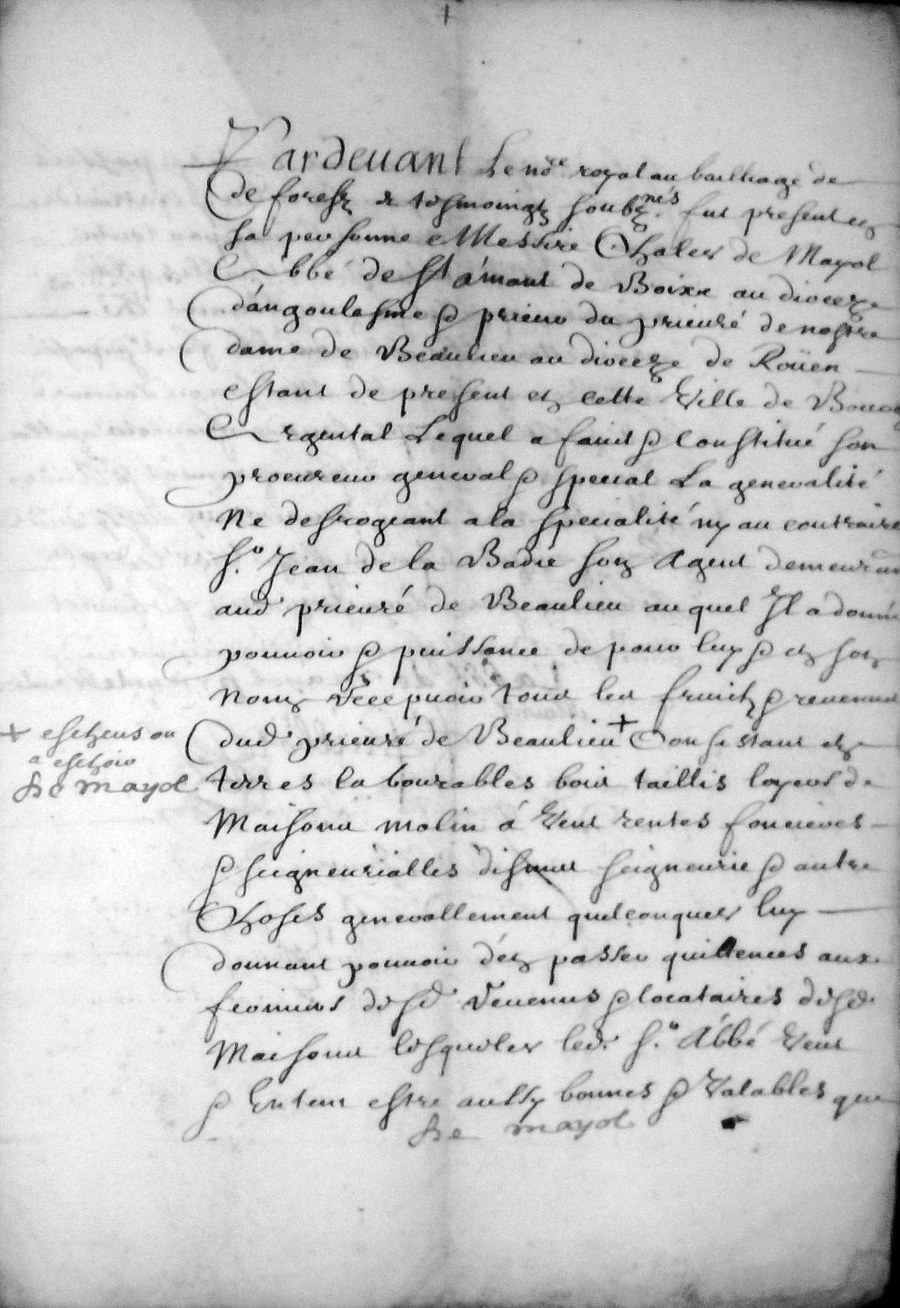 1
Pardevant Le no.re royal au bailliage de
de forestz & tesmoingtz soubz.nés fut present en
sa personne Messire Charles de Mayol
Abbé de st amant de Boixe au dioceze
d'angoulesme & prieur du prieuré de nostre
dame de Beaulieu au dioceze de Roüen
estant de present en cette Ville de Bourg
Argental Lequel a faict & constitué son
procureur general & special La generalité
Ne desrogeant a la specialité ny au contraire
s.r Jean de la Badie son Agent demeurant
aud prieuré de Beaulieu auquel Il a donné
pouvoir & puissance de pour luy & en son
Nom Recepvoir tous les fruictz & revenus
dud prieuré de Beaulieu + Consistant en
+ escheus ou
a eschoir
De mayol
terres labourables bois taillis loyers de
Maisons molin á Vent rentes foncieres
& seigneurialles dismes seigneurie & autre
Choses generallement quelconques luy
donnant pouvoir d'en passer quittences aux
fermiers desd Revenus & locataires desd
Maisons lesqueles led. s.r Abbé Veut
& Entent estre aussy bonnes & Valables que
De mayol